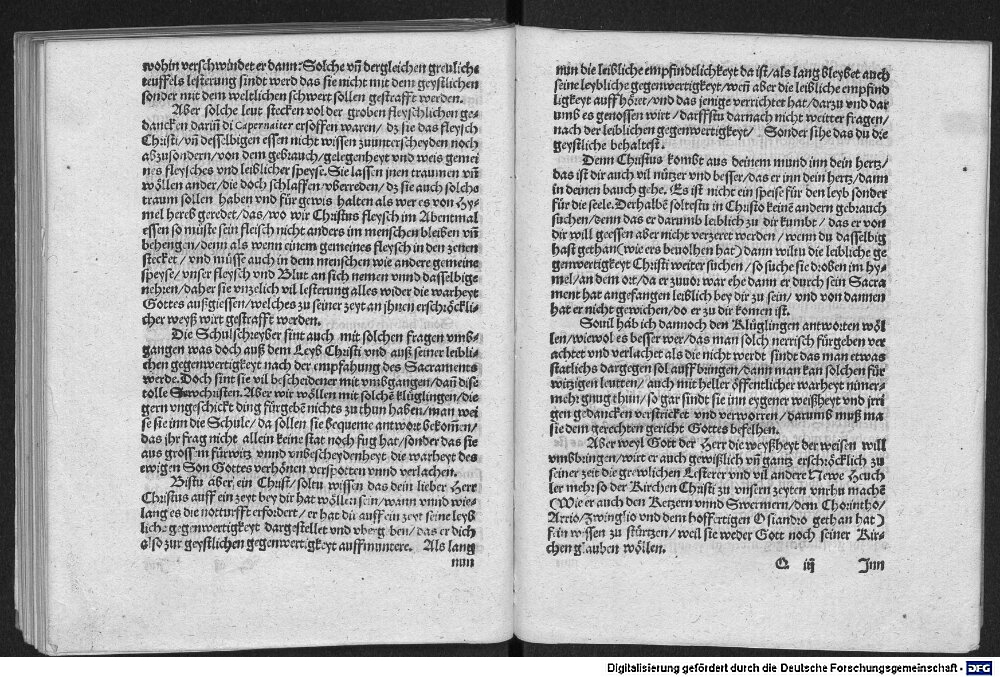 wohin verschwindet er dann: Solche vñ dergleichen greuliche
teuffels lesterung sindt werd das sie nicht mit dem geystlichen
sonder mit dem weltlichen schwert sollen gestrafft werden.
Aber solche leut stecken vol der groben fleyschlichen ge-
dancken dariñ di Capernaiter ersoffen waren/ dz sie das fleysch
Christi/ vñ desselbigen essen nicht wissen zuunterscheyden noch
abzusondern/ von dem gebrauch/ gelegenheyt vnd weis gemei
nes fleysches vnd leiblicher speyse. Sie lassen jnen traumen vñ
wöllen ander/ die doch schlaffen/ vberreden/ dz sie auch solche
traum sollen haben vnd für gewis halten als wer es von Hy-
mel hereb geredet/ das/ wo wir Christus fleysch im Abentmal
essen so müste sein fleisch nicht anders im menschen bleiben vñ
behengen/ denn als wenn einem gemeines fleysch in den zenen
stecket/ vnd müsse auch in dem menschen wie andere gemeine
speyse/ vnser fleysch vnd Blut an sich nemen vnnd dasselbige
nehren/ daher sie vnzelich vil lesterung alles wider die warheyt
Gottes außgiessen/ welches zu seiner zeyt an jhnen erschröckli-
cher weyß wirt gestrafft werden.
Die Schulschreyber sint auch mit solchen fragen vmb-
gangen was doch auß dem Leyb Christi vnd auß seiner leibli-
chen gegenwertigkeyt nach der empfahung des Sacraments
werde. Doch sint sie vil bescheidener mit vmbgangen/ dañ dise
tolle Christen. Aber wir wöllen mit solchē klüglingen/ die
gern vngeschickt ding fürgebē nichts zu thun haben/ man wei
se sie inn die Schule/ da sollen sie bequeme antwort bekom̃en/
das jhr frag nicht allein keine stat noch fug hat/ sonder das sie
aus grossem fürwitz vnnd vnbescheydenheyt die warheyt des
ewigen Son Gottes verhönen verspotten vnnd verlachen.
Bistu aber ein Christ/ soltu wissen das dein lieber Herr
Christus auff ein zeyt bey dir hat wöllen sein/ wann vnnd wie-
lang es die notturfft erfordert/ er hat dir auff ein zeyt seine leyb
liche gegenwertigkeyt dargestellet vnd vbergeben/ das er dich
also zur geystlichen gegenwertigkeyt auffmuntere. Als lang
nun
nun die leibliche empfindtlichkeyt da ist/ als lang bleybet auch
seine leybliche gegenwertigkeyt/ weñ aber die leibliche empfind
ligkeyt auffhöret/ vnd das jenige verrichtet hat/ darzu vnd dar
umb es genossen wirt/ darffstu darnach nicht weitter fragen/
nach der leiblichen gegenwertigkeyt/ Sonder sihe das du die
geystliche behaltest.
Denn Christus kombt aus deinem mund inn dein hertz/
das ist dir auch vil nützer vnd besser/ das er inn dein hertz/ dann
in deinen bauch gehe. Es ist nicht ein speise für den leyb sonder
für die seele. Derhalbē soltestu in Christo keinē andern gebrauch
suchen/ denn das er darumb leiblich zu dir kumbt/ das er von
dir will geessen aber nicht verzeret werden/ wenn du dasselbig
hast gethan (wie ers beuolhen hat) dann wiltu die leibliche ge
genwertigkeyt Christi weiter suchen/ so suche sie droben im hy-
mel/ an dem ort/ da er zuuor war ehe dann er durch sein Sacra
ment hat angefangen leiblich bey dir zu sein/ vnd von dannen
hat er nicht gewichen/ do er zu dir komen ist.
Souil hab ich dannoch den Klüglingen antworten wöl
len/ wiewol es besser wer/ das man solch nerrisch fürgeben ver
achtet vnd verlachet als die nicht werdt sindt das man etwas
statlichs dargegen sol auffbringen/ dann man kan solchen für
witzigen leutten/ auch mit heller öffentlicher warheyt nimer-
mehr gnug thun/ so gar sindt sie inn eygener weißheyt vnd jrri
gen gedancken verstricket vnd verworren/ darumb muß ma
sie dem gerechten gericht Gottes befelhen.
Aber weyl Gott der Herr die weyßheyt der weisen will
vmbbringen/ wirt er auch gewißlich vñ gantz erschröcklich zu
seiner zeit die grewlichen Lesterer vnd vil andere Newe Heuch
ler mehr so der Kirchen Christi zu vnsern zeyten vnrhu machē
(Wie er auch den Ketzern vnnd Swermern/ dem Chorintho/
Arrio/ Zwinglio vnd dem hoffertigen Osiandro gethan hat)
fein wissen zu stürtzen/ weil sie weder Gott noch seiner Kir-
chen glauben wöllen.
Q iij Jnn
Digitalisierung gefördert durch die Deutsche Forschungsgemeinschaft - DFG